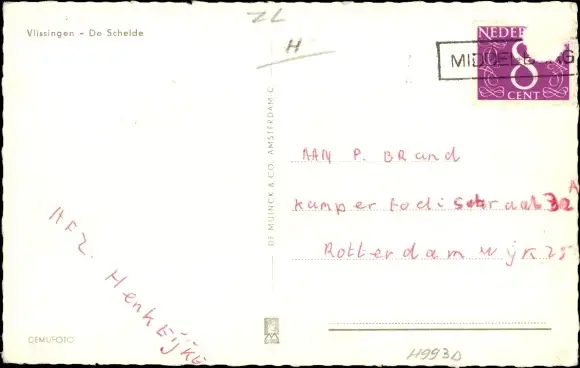 Vlissingen - De Schelde
ZL
H
NEDER
8
CENT
MIDDELB G
DE MUINCK & CO. AMSTERDAM-C.
AAN P. BRand
kamper fodistraat 32 A
Rotterdam wijk 25
AFZ. Henk Eijke
GEMUFOTO
H993D